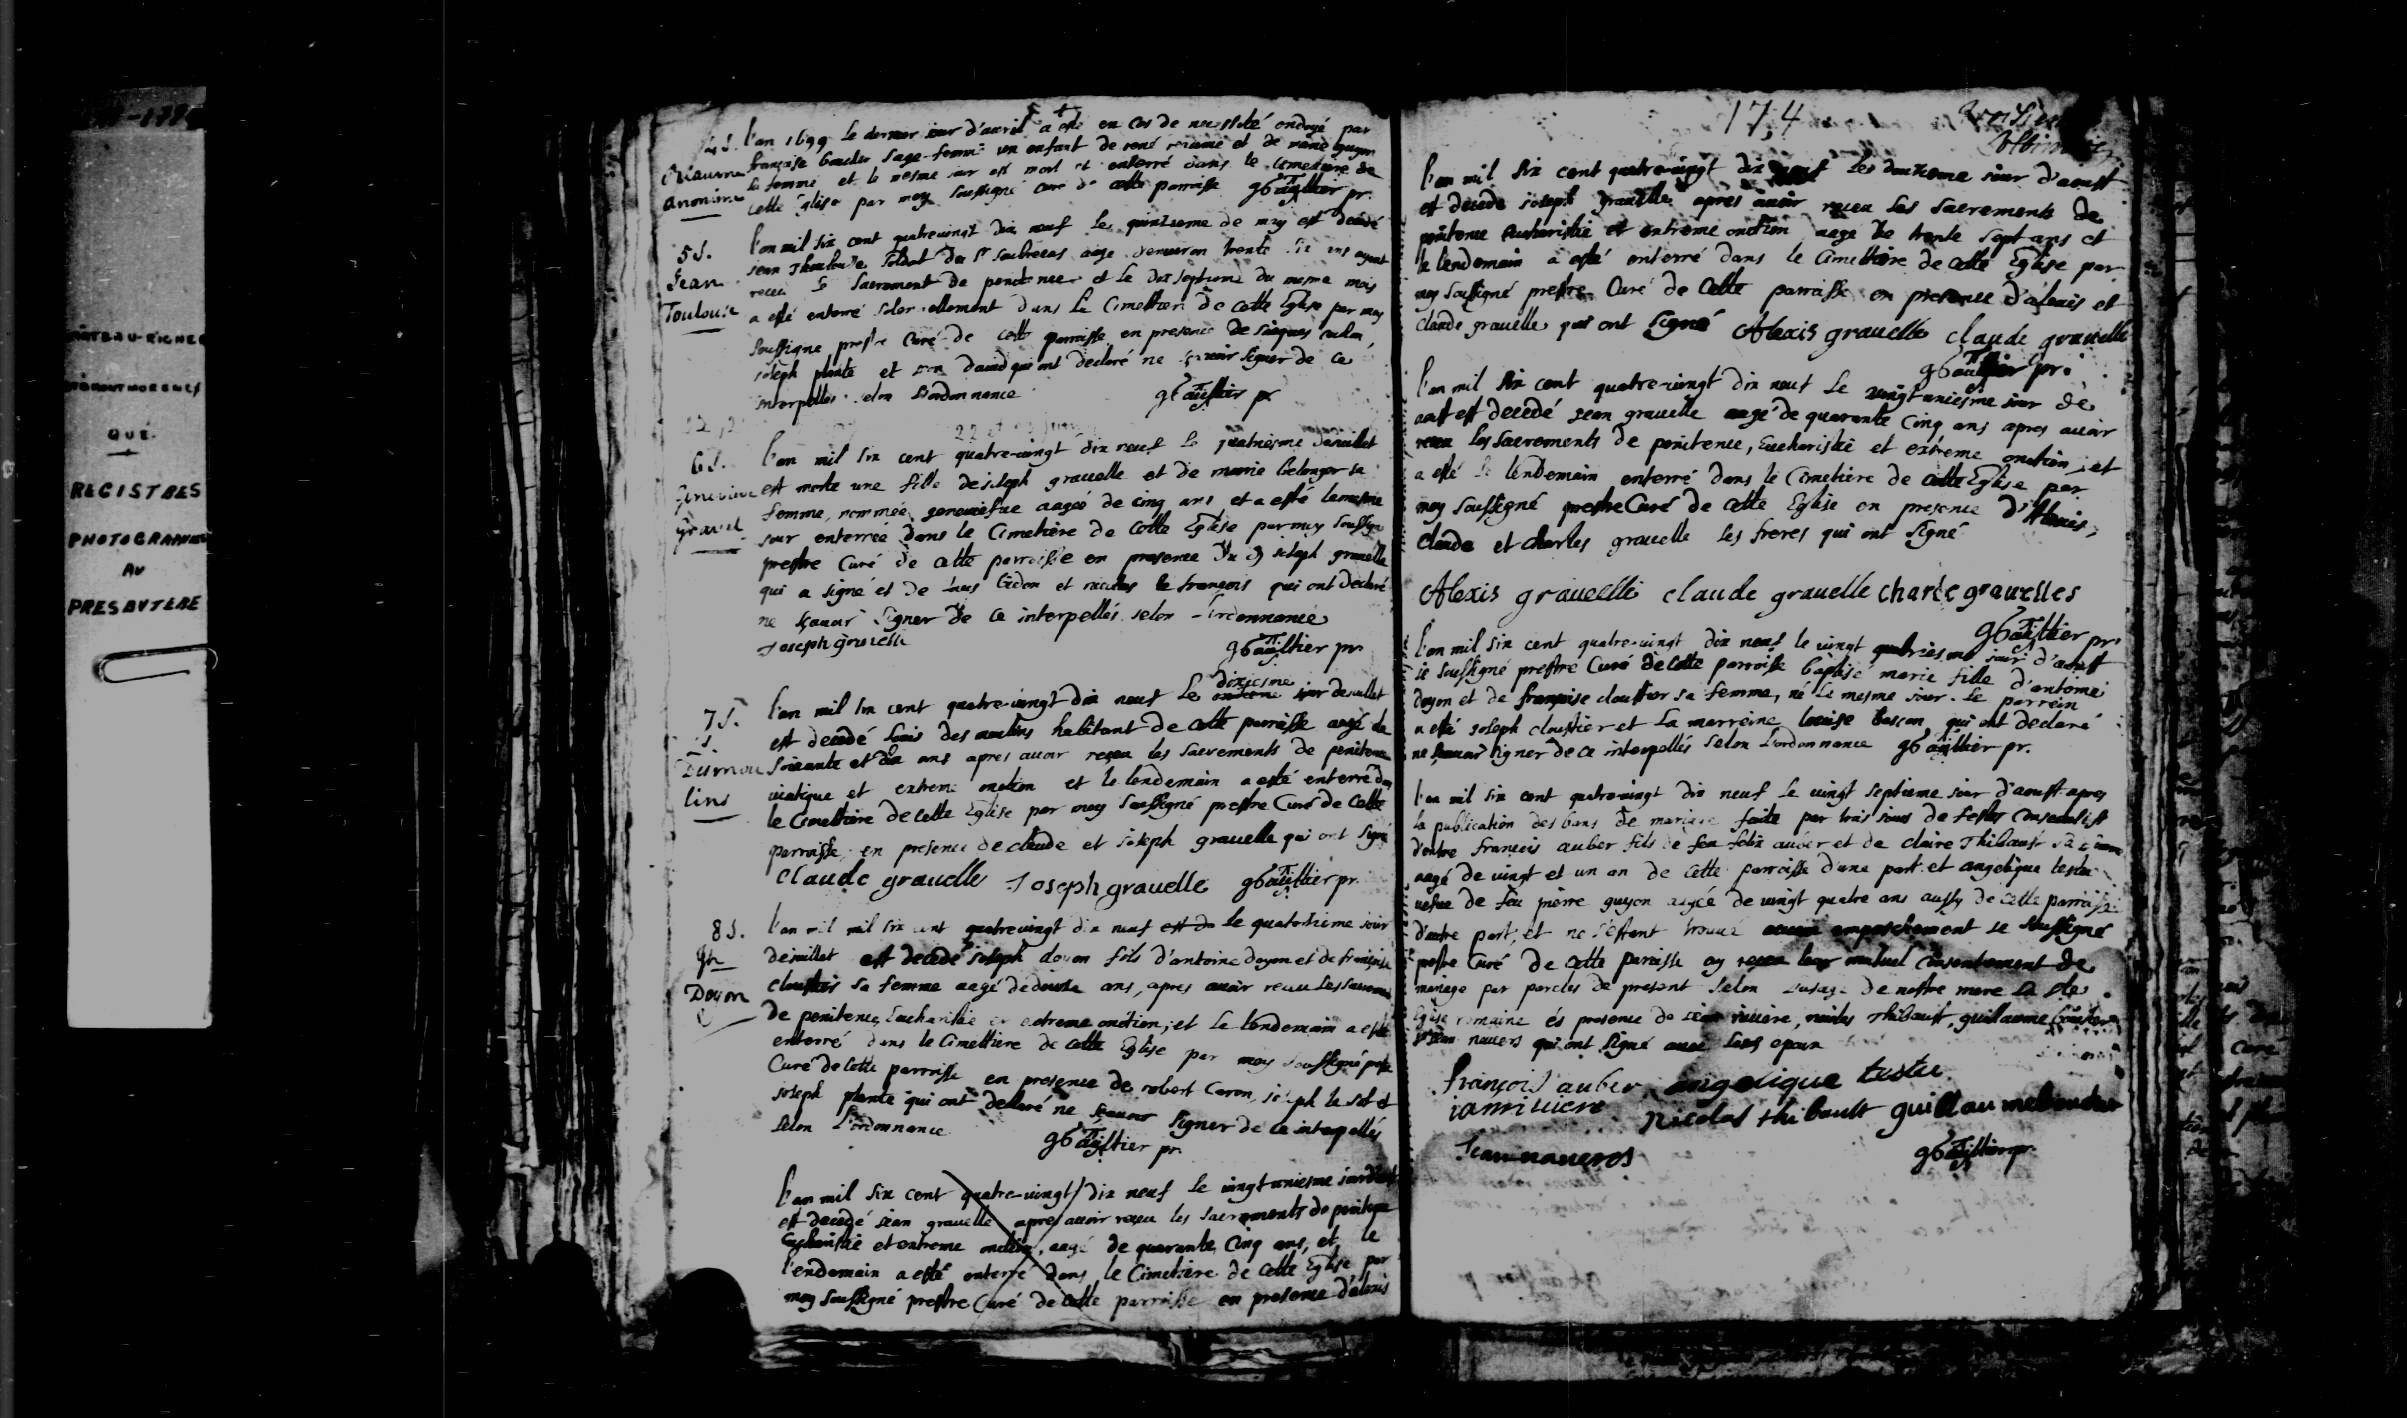 CHÂTEAU-RICHER
QUÉ.
REGISTRES
PHOTOGRAPHIÉS
AU
PRESBYTERE
4
4 S.
anonime
l'an 1699 le dernier iour d'auril a esté en cas de necessité ondoyé par
françoise Sage-femme un enfant de rené reaume et de marie guyon
sa femme et le mesme iour est mort et enterré dans le cimetiere de
cette Eglise par moy soussigné curé de cette parroisse gGaultier pr.
5 S.
Jean
Toulouse
l'an mil six cent quatre-vingt dix neuf le quinzieme de may est decedé
Jean Thoulouse soldat du Sr aagé denuiron trente six ans ayant
receu le Sacrement de penitence et le dix septieme du mesme mois
a esté enterré dans le Cimettiere de cette Eglise par moy
Soussigné prestre Curé de cette parroisse en presence de Jacques
joseph plante et Jean Dauid qui ont declaré ne sçauoir signer de ce
interpellés selon l'ordonnance gGaultier pr
6 S.
Geneuieue
Grauel
l'an mil six cent quatre-vingt dix neuf le quatriesme de iuillet
est morte une fille de ioseph grauelle et de marie belanger sa
femme, nommée geneuiefue aagée de cinq ans et a esté le mesme
iour enterrée dans le Cimetiere de cette Eglise par moy soussigné
prestre Curé de cette parroisse en presence du dit ioseph grauelle
qui a signé et de et nicolas le françois qui ont declaré
ne sçauoir Signer de ce interpellés selon l'ordonnance
Joseph grauelle gGaultier pr
7 S.
Desmou
lins
l'an mil six cent quatre-vingt dix neuf le dixiesme iour de iuillet
est decedé Louis des moulins habitant de cette parroisse aagé de
soixante et dix ans apres auoir receu les sacrements de penitence
viatique et extreme onction et le lendemain a esté enterré dans
le Cimettiere de cette Eglise par moy soussigné prestre Curé de cette
parroisse, en presence de claude et ioseph grauelle qui ont signé
claude grauelle Joseph grauelle gGaultier pr.
8 S.
Jh
Doyon
l'an mil mil six cent quatre vingt dix neuf est de le quatorzieme iour
de iuillet est decedé ioseph doyon fils d'antoine doyon et de françoise
cloustier sa femme aagé de douze ans, apres auoir receu les sacrements
de penitence, Eucharistie et extreme onction, et le lendemain a esté
enterré dans le Cimettiere de cette Eglise par moy soussigné prestre
Curé de cette parroisse en presence de robert Caron, ioseph le sot et
ioseph plante qui ont declaré ne sçauoir signer de ce interpellés
selon l'ordonnance gGaultier pr.
l'an mil six cent quatre-vingt dix neuf le vingt uniesme iour d'aoust
est decedé iean grauelle apres auoir receu les sacrements de penitence
Eucharistie et extreme onction, aagé de quarante cinq ans, et le
l'endemain a esté enterré dans le Cimetiere de cette Eglise par
moy soussigné prestre Curé de cette parroisse en presence d'alexis
174
l'an mil six cent quatre-vingt dix neuf les douzieme iour d'aoust
est decedé ioseph grauelle apres auoir receu les sacrements de
penitence eucharistie et extreme onction aagé de trente sept ans et
le lendemain a esté enterré dans le Cimettiere de cette Eglise par
moy soussigné prestre Curé de cette parroisse en presence d'alexis et
claude grauelle qui ont signé Alexis grauelle claude grauelle
gGaultier pr.
l'an mil six cent quatre-vingt dix neuf le vingt uniesme iour de
aoust est decedé iean grauelle aagé de quarante cinq ans apres auoir
receu les sacrements de penitence, Eucharistie et extreme onction, et
a esté le lendemain enterré dans le Cimetiere de cette Eglise par
moy soussigné prestre Curé de cette Eglise en presence d'Alexis,
claude et charles grauelle les freres qui ont signé
Alexis grauelle claude grauelle charle grauelles
gGaultier pr.
l'an mil six cent quatre-vingt dix neuf le vingt quatriesme iour d'aoust
ie soussigné prestre Curé de cette parroisse baptisé marie fille d'antoine
doyon et de françoise cloustier sa femme, né le mesme iour. le parrein
a esté ioseph cloustier et la marreine louise qui ont declaré
ne sçauoir signer de ce interpellés selon l'ordonnance gGaultier pr.
l'an mil six cent quatre-vingt dix neuf le vingt septieme iour d'aoust apres
la publication des bans de mariage faite par trois iours de festes consecutifs
d'entre françois auber fils de feu felix auber et de claire Thibault sa femme
aagé de vingt et un an de cette parroisse d'une part et angelique testu
vefue de feu pierre guyon aagée de vingt quatre ans aussy de cette parroisse
d'autre part, et ne s'estant trouué aucun empeschement ie soussigné
prestre Curé de cette parroisse ay receu leur mutuel consentement de
mariage par paroles de present selon l'usage de nostre mere la Ste
Eglise romaine és presence de iean riuiere, nicolas Thibault, guillaume
et iean nauers qui ont signé auec
françois auber angelique testu
ian riuiere Nicolas thibault guillaume
Jean nauers gGaultier pr.